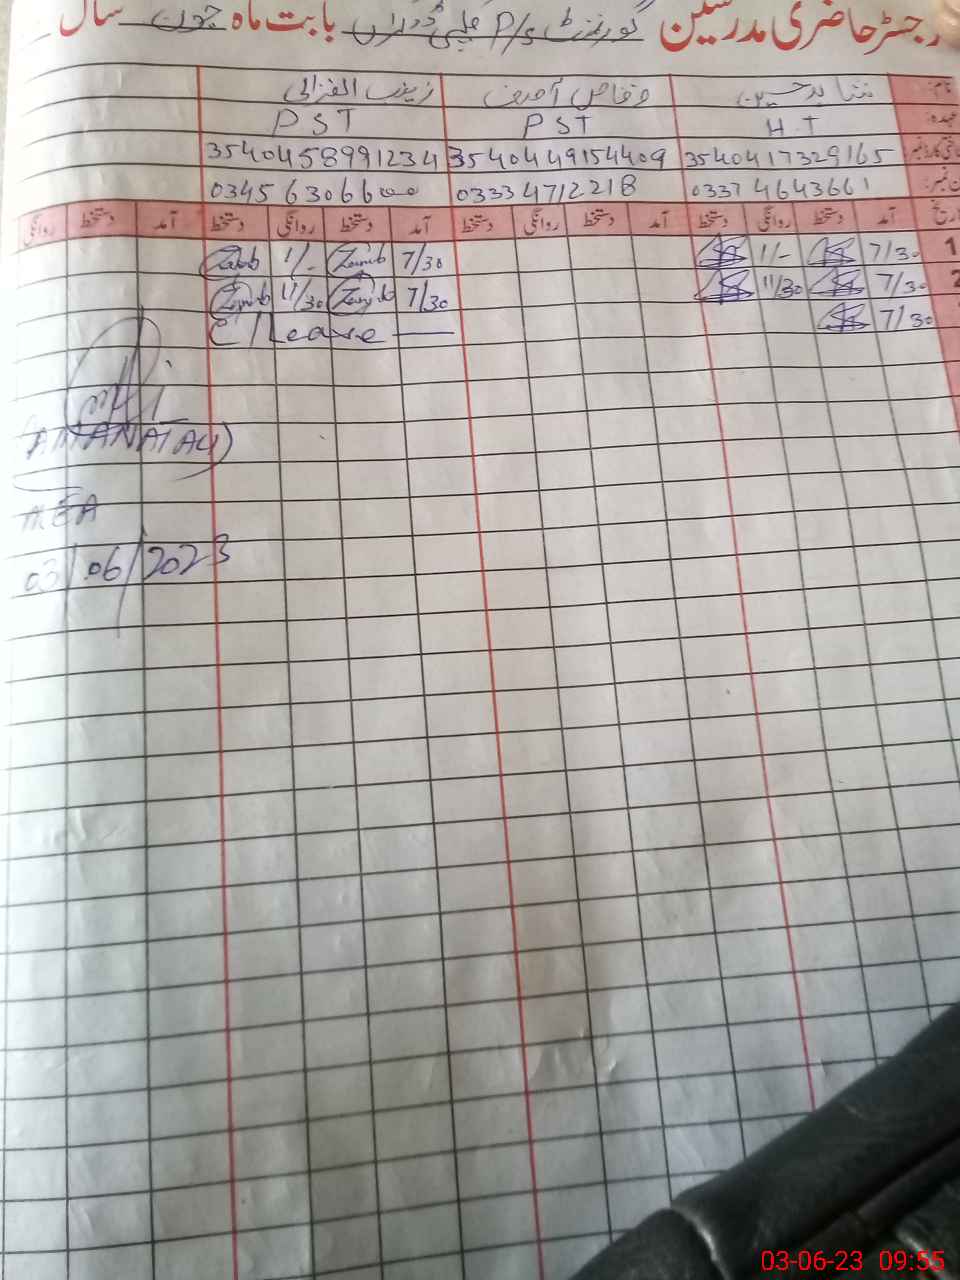 رجسٹر حاضری مدرسین گورنمنٹ P/S بابت ماہ جون سال
نام: شاہد حسین وقاص آصف زینب الغزالی
عہدہ: HT PST PST
3540417329165 3540449154409 3540458991234
0337 4643661 0333 4712218 0345 63066
تاریخ آمد دستخط روانگی دستخط آمد دستخط روانگی دستخط آمد دستخط روانگی دستخط آمد دستخط روانگی
1 7/30 11/- 7/30 Zainab 11/- Zainab
2 7/30 11/30 7/30 Zainab 11/30 Zainab
7/30 C/Leave
(AMANAT ALI)
AEA
03/06/2023
03-06-23 09:55